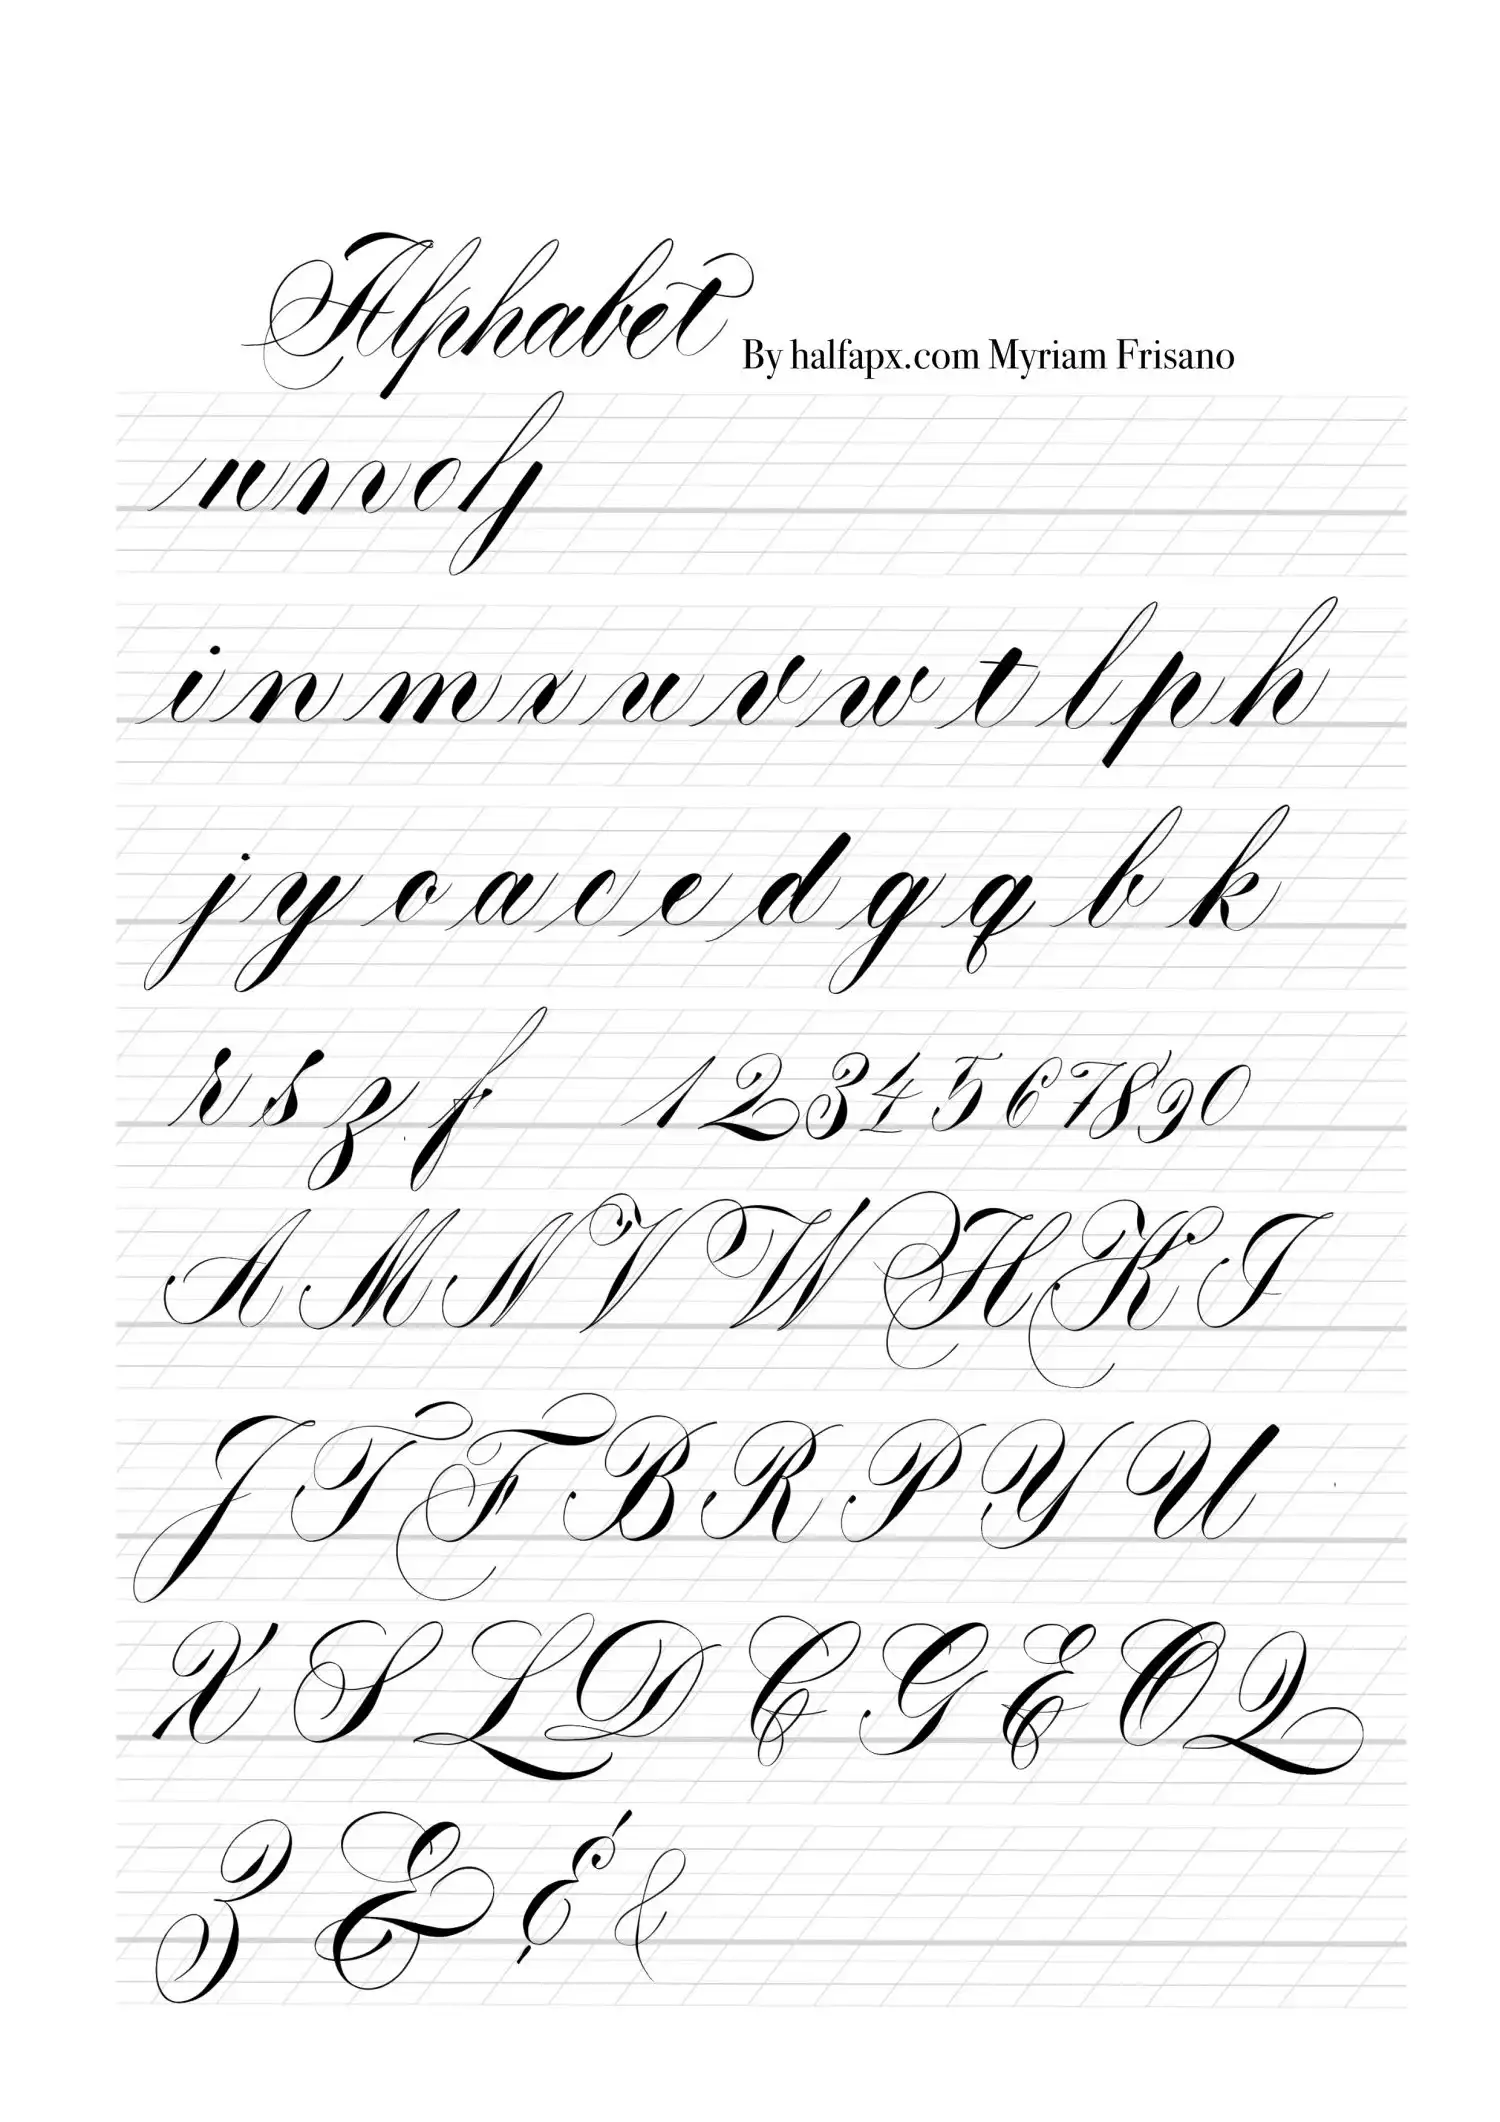 Alphabet By halfapx.com Myriam Frisano
i n m x u v w t l p h
j y o a c e d g q b k
r s z f 1 2 3 4 5 6 7 8 9 0
A M N V W H K I
J T F B R P Y U
X S L D C G E O Q
Z & & &